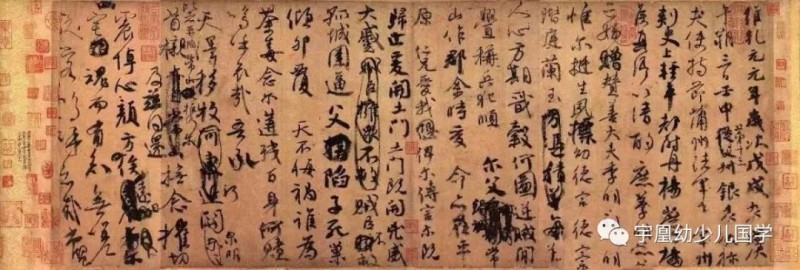 維乾元元年歲次戊戌九月庚
午朔三日壬申第十三叔銀青光祿
夫使持節蒲州諸軍事蒲州
刺史上輕車都尉丹楊縣開國
侯真卿以清酌庶羞祭于
亡姪贈贊善大夫季明之靈曰
惟爾挺生夙標幼德宗廟瑚璉
階庭蘭玉每慰
人心方期戩穀何圖逆賊閒
釁稱兵犯順爾父竭誠常
山作郡余時受命亦在平
原仁兄愛我俾爾傳言爾既
歸止爰開土門土門既開凶威
大蹙賊臣不救
孤城圍逼父陷子死巢
傾卵覆天不悔禍誰為
荼毒念爾遘殘百身何贖
嗚呼哀哉吾承
天澤移牧河關泉明
比者再陷常山攜爾
首櫬及茲同還撫念摧切
震悼心顏方俟遠日
卜爾幽宅魂而有知無嗟
久客嗚呼哀哉尚饗
宇凰幼少儿国学